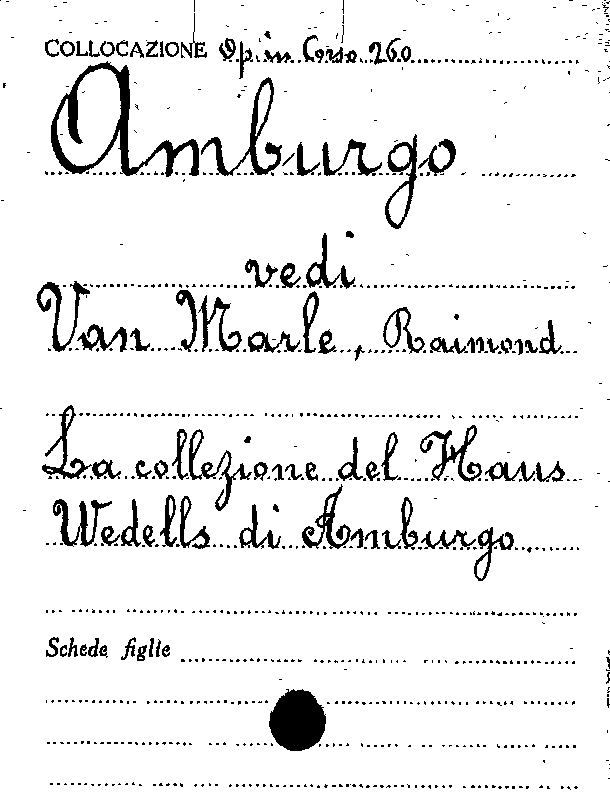 COLLOCAZIONE Op. in Corso 260
Amburgo
vedi
Van Marle, Raimond
La collezione del Haus
Wedells di Amburgo.
Schede figlie